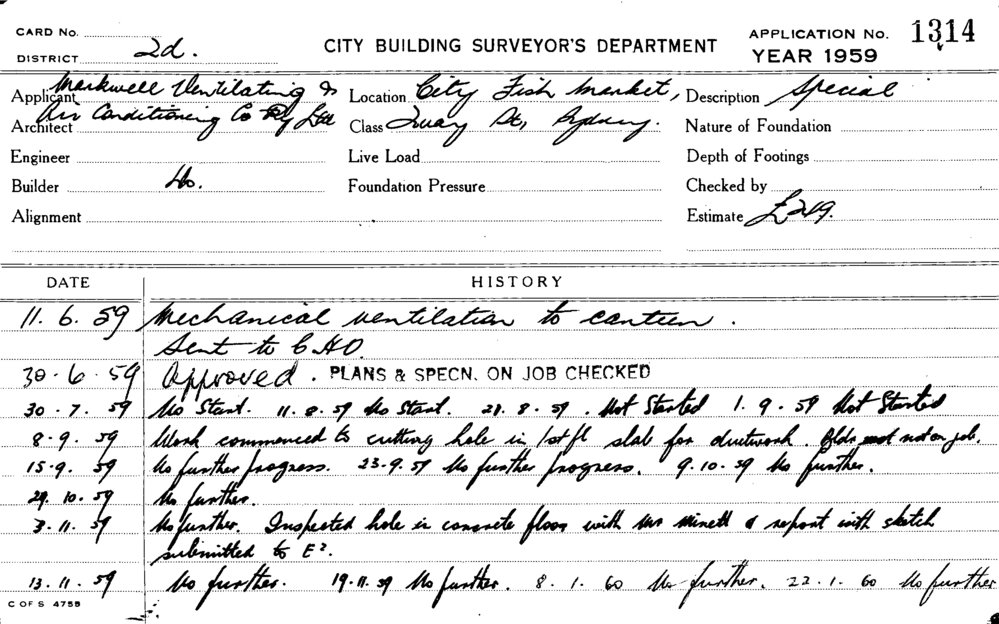 CARD No.
DISTRICT 2d.
CITY BUILDING SURVEYOR'S DEPARTMENT
APPLICATION No. 1314
YEAR 1959
Applicant Markwell Ventilating &
Architect Air Conditioning Co Pty Ltd
Engineer
Builder Do.
Alignment
Location City Fish Market,
Class Quay St, Sydney.
Live Load
Foundation Pressure
Description Special
Nature of Foundation
Depth of Footings
Checked by
Estimate £219.
DATE HISTORY
11. 6. 59 Mechanical ventilation to canteen.
Sent to C.H.O.
30. 6. 59 Approved. PLANS & SPECN. ON JOB CHECKED
30. 7. 59 No Start. 11. 8. 59 No Start. 21. 8. 59. Not Started 1. 9. 59 Not Started
8. 9. 59 Work commenced to cutting hole in 1st fl slab for ductwork. Bldr not on job.
15. 9. 59 No further progress. 23. 9. 59 No further progress. 9. 10. 59 No further.
29. 10. 59 No further.
3. 11. 59 No further. Inspected hole in concrete floor with Mr Minett & report with sketch
submitted to E2.
13. 11. 59 No further. 19. 11. 59 No further. 8. 1. 60 No further. 22. 1. 60 No further
C OF S 4755